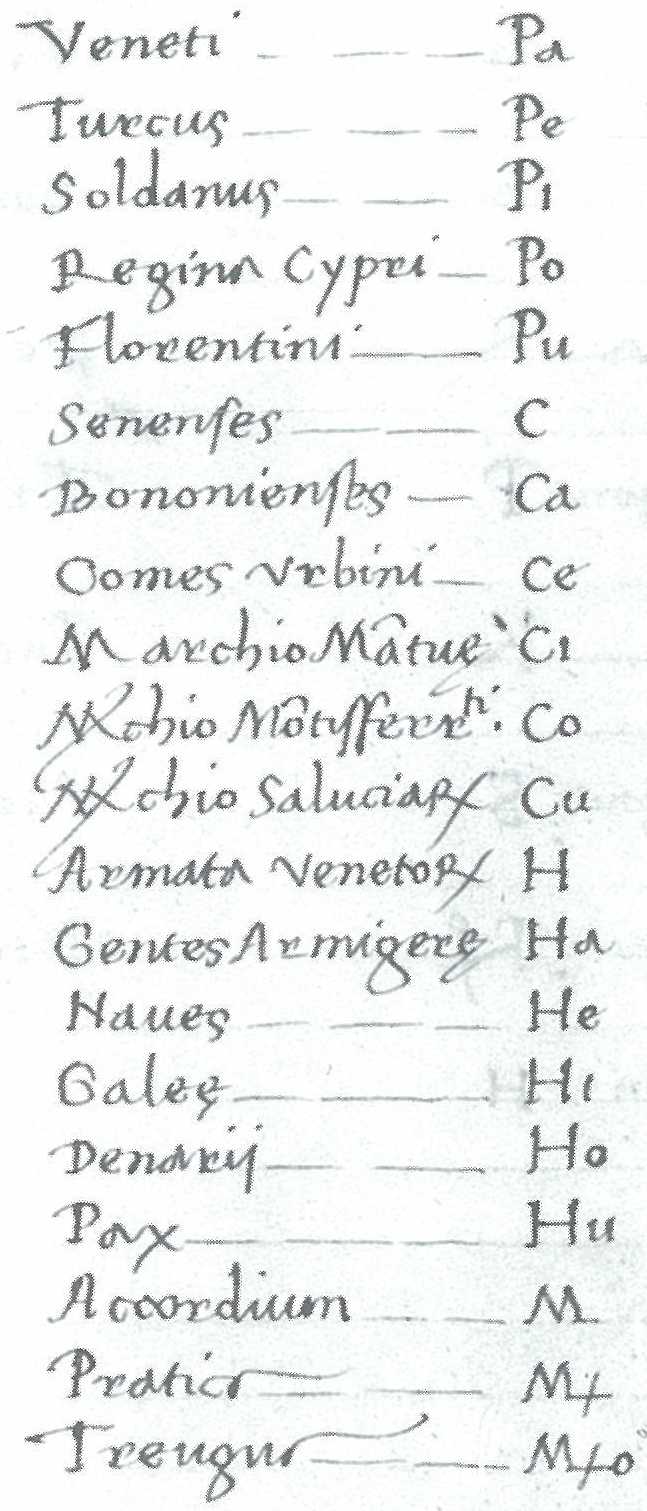 Veneti — — — Pa
Turcus — — — Pe
Soldanus — — Pi
Regina Cypri — Po
Florentini — — Pu
Senenses — — C
Bononienses — Ca
Comes Vrbini — Ce
Marchio Mãtuę Ci
Mchio Mõtisferrti. Co
Mchio Saluciaꝝ Cu
Armata Venetoꝝ H
Gentes Armigerę Ha
Naues — — — He
Galeę — — — Hi
Denarij — — — Ho
Pax — — — Hu
Accordium — — M
Pratica — — M+
Treugua — — M+o